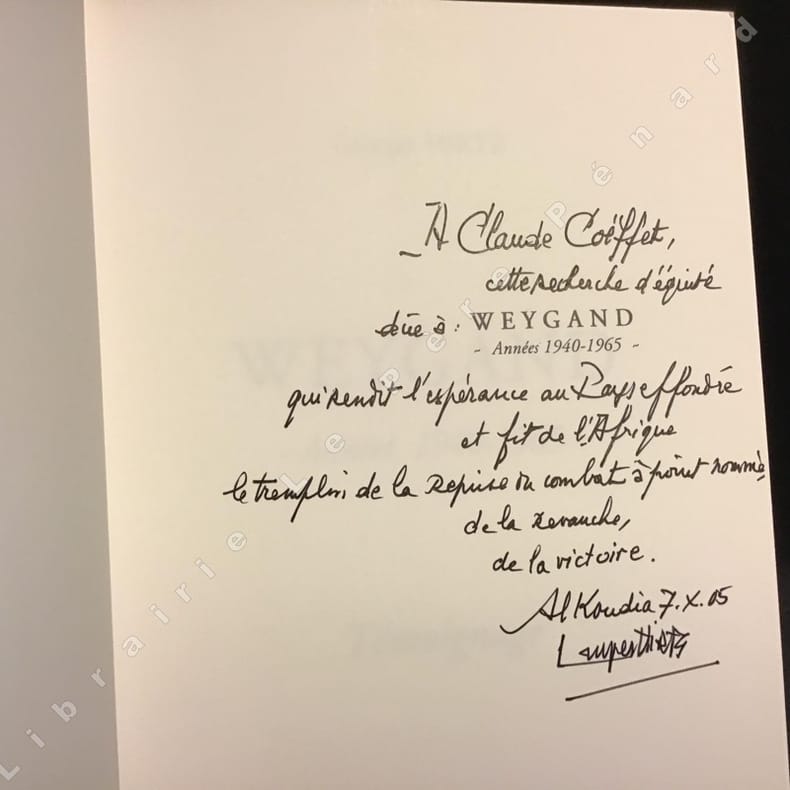 A Claude Coëffet,
cette recherche d'équité
dûe à : WEYGAND
- Années 1940-1965 -
qui rendit l'espérance au Pays effondré
et fit de l'Afrique
le tremplin de la Reprise du combat à point nommé,
de la revanche,
de la victoire.
Al Koudia 7.X.05
Librairie Le Père Pénard